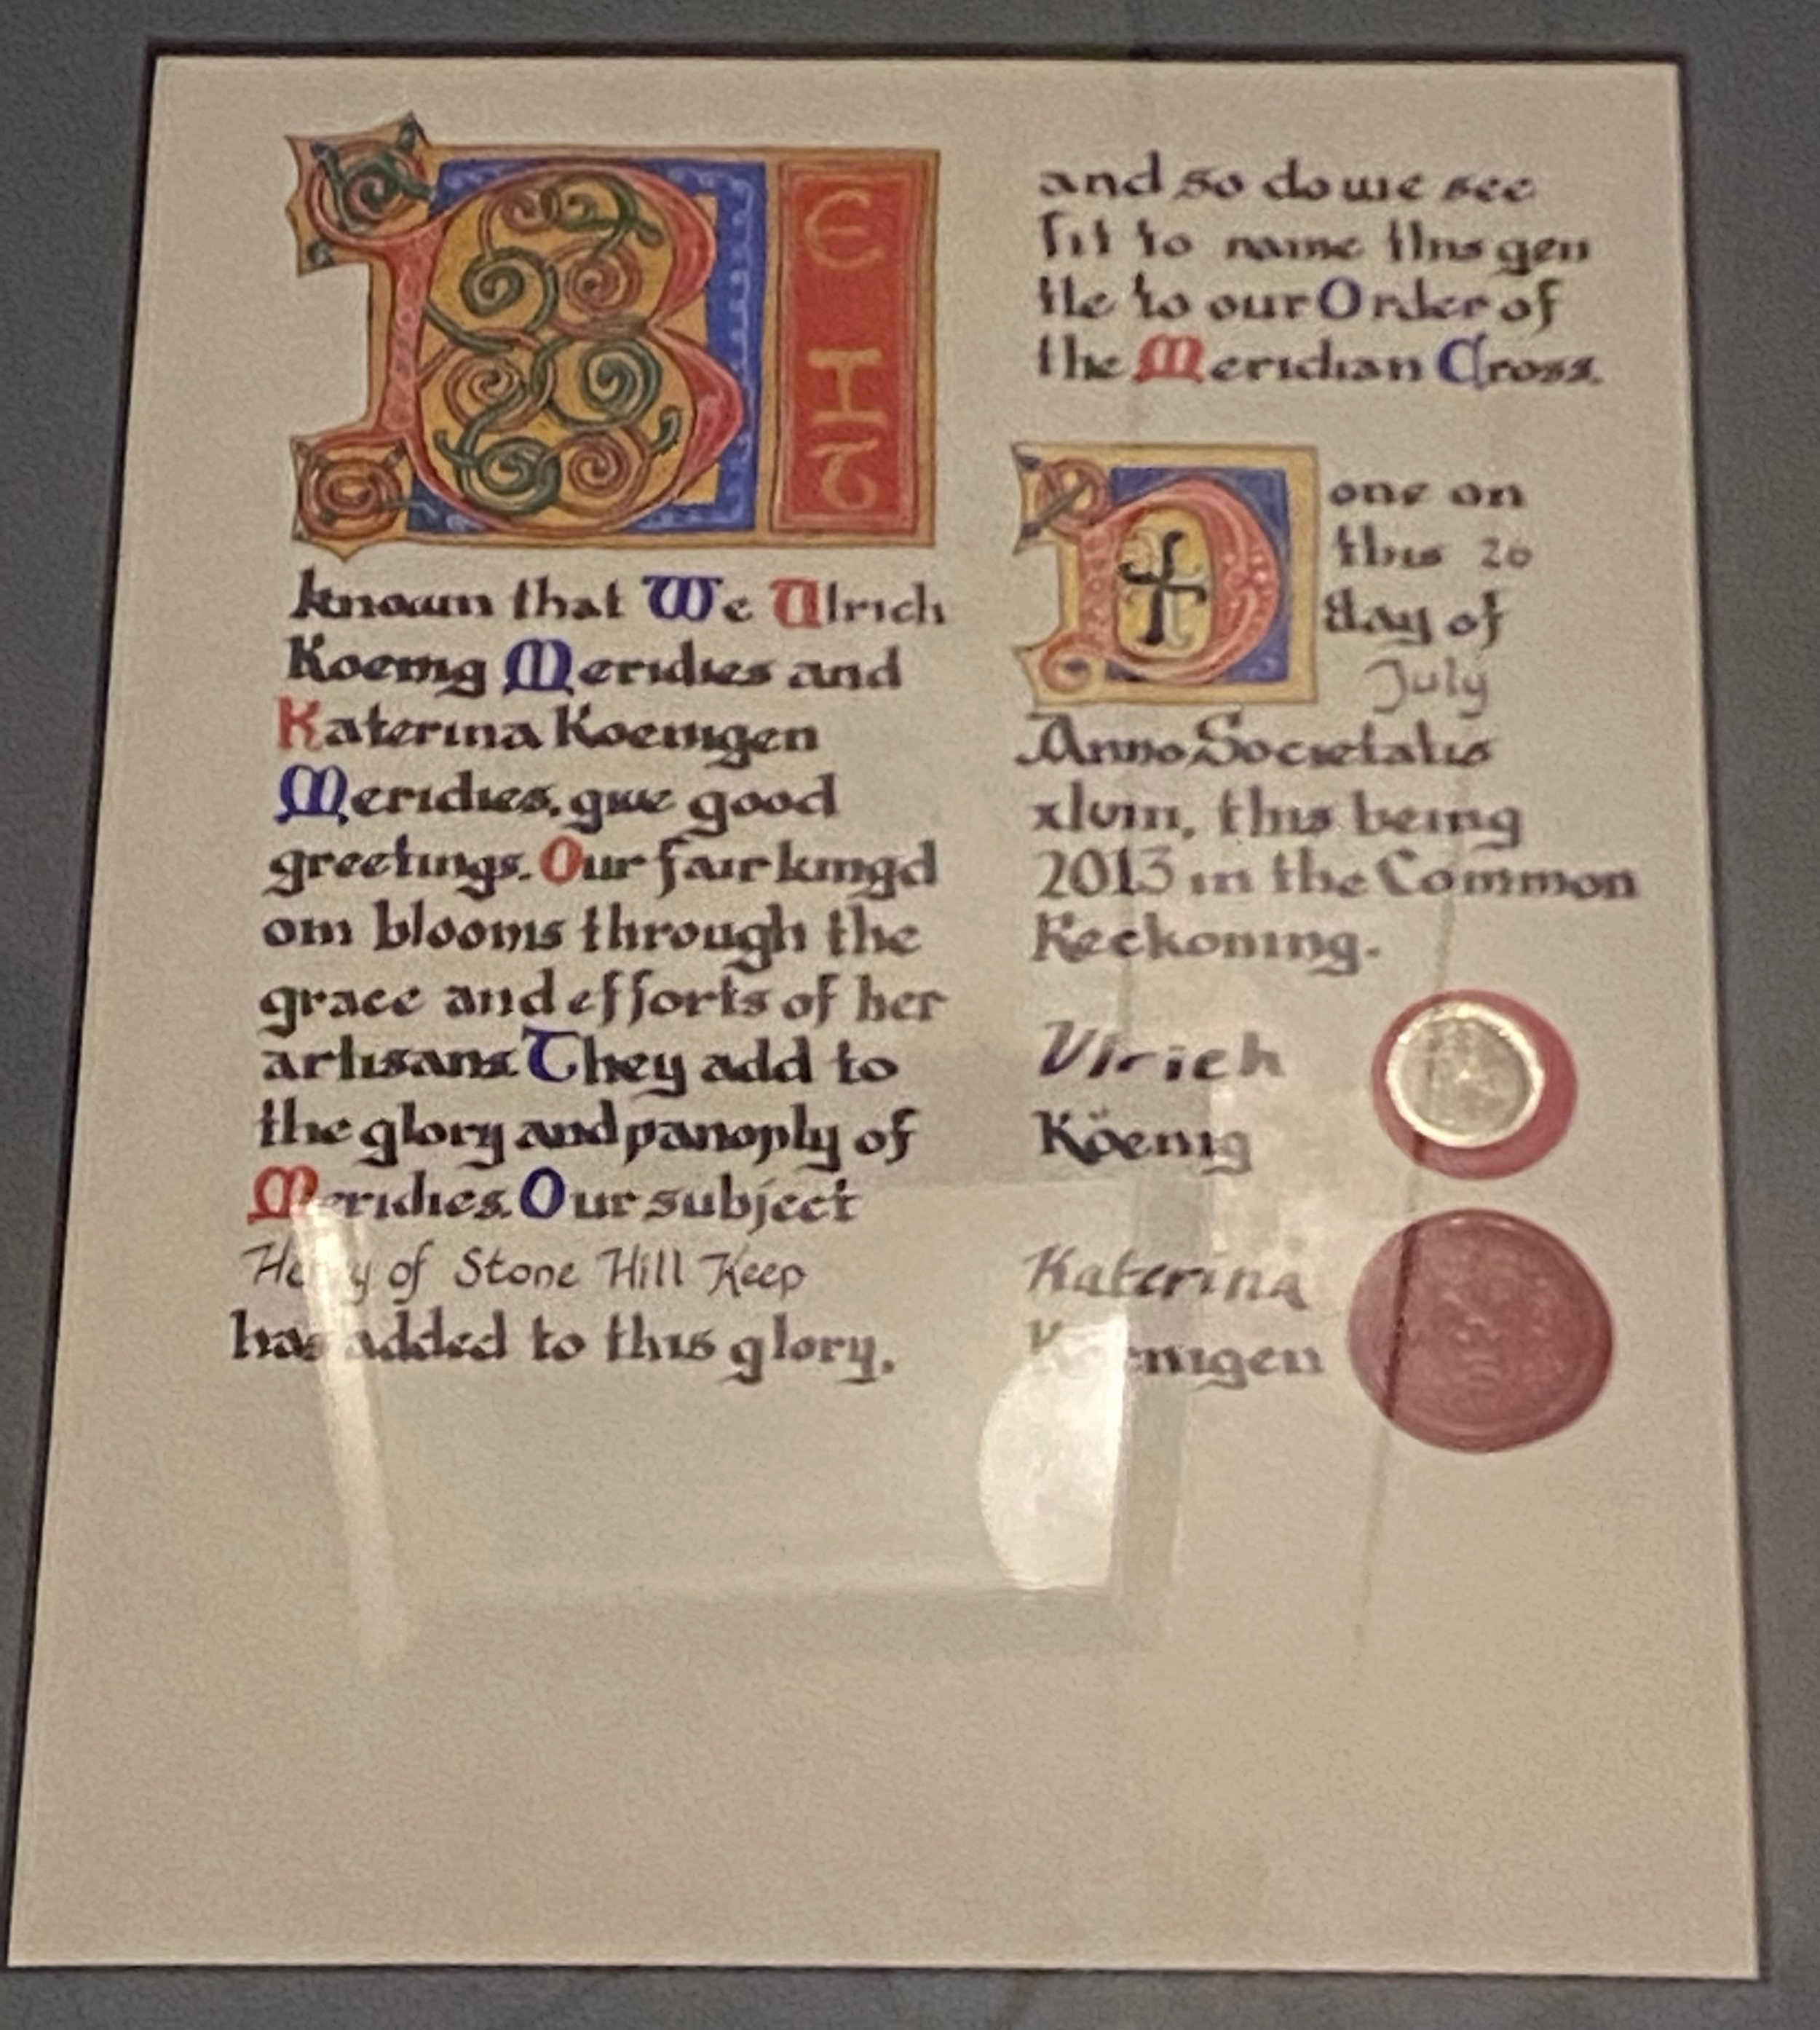 BE
IT
known that We Ulrich
Koenig Meridies and
Katerina Koenigen
Meridies, give good
greetings. Our fair kingd
om blooms through the
grace and efforts of her
artisans. They add to
the glory and panoply of
Meridies. Our subject
of Stone Hill Keep
has added to this glory.
and so do we see
fit to name this gen
tle to our Order of
the Meridian Cross.
Done on
this 20
day of
July
Anno Societatis
xlviii, this being
2013 in the Common
Reckoning.
Ulrich
Köenig
Katerina
Koenigen